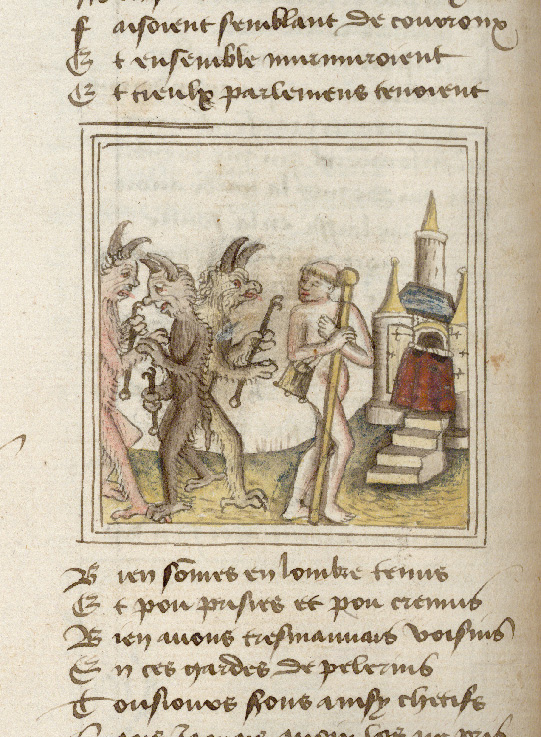 f aisoient semblant de couroux
E t ensemble murmuroient
E t tieulx parlemens tenoient
B ien sõmes en lombre tenus
E t pou prisies et pou cremus
B ien auons tresmauuais voisins
E n ces gardes de pelerins
T ousiours sons ainsy chetifs